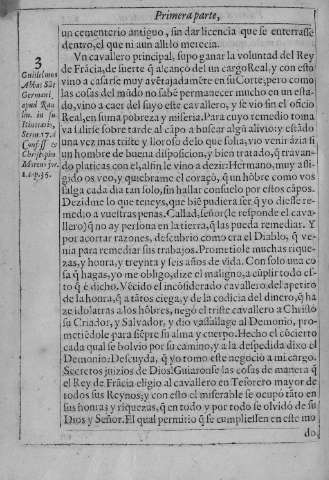 Primera parte,
un cementerio antiguo, sin dar licencia que se enterrasse
dentro, el que ni aun allilo merecia.
3
Guilelmus
Abbas Sāt
Germani,
apud Rau
lin. in su
Itinerario,
Serm. 17. d
Un cavallero principal, supo ganar la voluntad del Rey
de Frãcia, de suerte q̃ alcançò del un cargo Real, y con esto
vino a casarse muy avẽtajadamẽte en su Corte; pero como
las cosas del mũdo no sabẽ permanecer mucho en un esta-
do, vino a caer del suyo este cavallero, y se vio sin el oficio
Real, en suma pobreza y miseria. Para cuyo remedio toma
va salirse sobre tarde al cãpo a buscar algũ alivio: y estãdo
una vez mas triste y lloroso de lo que solia, vio venir àzia si
un hombre de buena disposicion, y bien tratado, q̃ travan-
do platicas con el, al fin le vino a dezir: Hermano, muy afli-
gido os veo, y quebrame el coraçõ, q̃ un hõbre como vos
salga cada dia tan solo, sin hallar consuelo por estos cãpos.
Dezidme lo que teneys, que biẽ pudiera ser q̃ yo diesse re-
medio a vuestras penas. Callad, señor (le responde el cava-
llero) q̃ no ay persona en la tierra, q̃ las pueda remediar. Y
por acortar razones, descubrio como era el Diablo, q̃ ve-
nia para remediar sus trabajos. Prometiole muchas rique-
zas, y honra, y treynta y seis años de vida. Con solo una co
sa q̃ hagas, yo me obligo, dize el maligno, a cũplir todo es-
to q̃ è dicho. Vẽcido el incõsiderado cavallero, del apetito
de la honra, q̃ a tãtos ciega, y de la codicia del dinero, q̃ ha
ze idolatras a los hõbres, negò el triste cavallero a Christo
su Criador, y Salvador, y dio vassallage al Demonio, pro-
metiẽdole para siẽpre su alma y cuerpo. Hecho el cõcierto
cada qual se bolvio por su camino, y a la despedida dixo el
Demonio: Descuyda, q̃ yo tomo este negocio a mi cargo.
Secretos juizios de Dios! Guiaronse las cosas de manera q̃
el Rey de Frãcia eligiò al cavallero en Tesorero mayor de
todos sus Reynos; y con esto el miserable se ocupò tãto en
sus honras y riquezas, q̃ en todo y por todo se olvidò de su
Dios y Señor. El qual permitio q̃ se cumpliessen en este mo
do